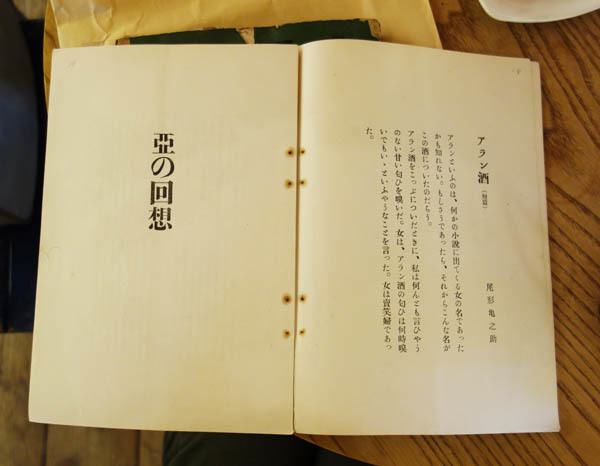 アラン酒（短篇）
尾形亀之助
アランといふのは、何かの小説に出てくる女の名であつた
かも知れない。もしさうであつたら、それからこんな名が
この酒についたのだらう。
アラン酒をこつぷについだときに、私は何んとも言ひやう
のない甘い匂ひを嗅いだ。女は、アラン酒の匂ひは何時嗅
いでもいゝといふやうなことを言つた。女は賣笑婦であつ
た。
亞の回想